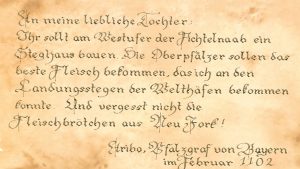 An meine liebliche Tochter:
Ihr sollt am Westufer der Fichtelnaab ein
Steghaus bauen. Die Oberpfälzer sollen das
beste Fleisch bekommen, das ich an den
Landungsstegen der Welthäfen bekommen
konnte. Und vergesst nicht die
Fleischbrötchen aus Neu Fork!
Aribo, Pfalzgraf von Bayern
im Februar 1102